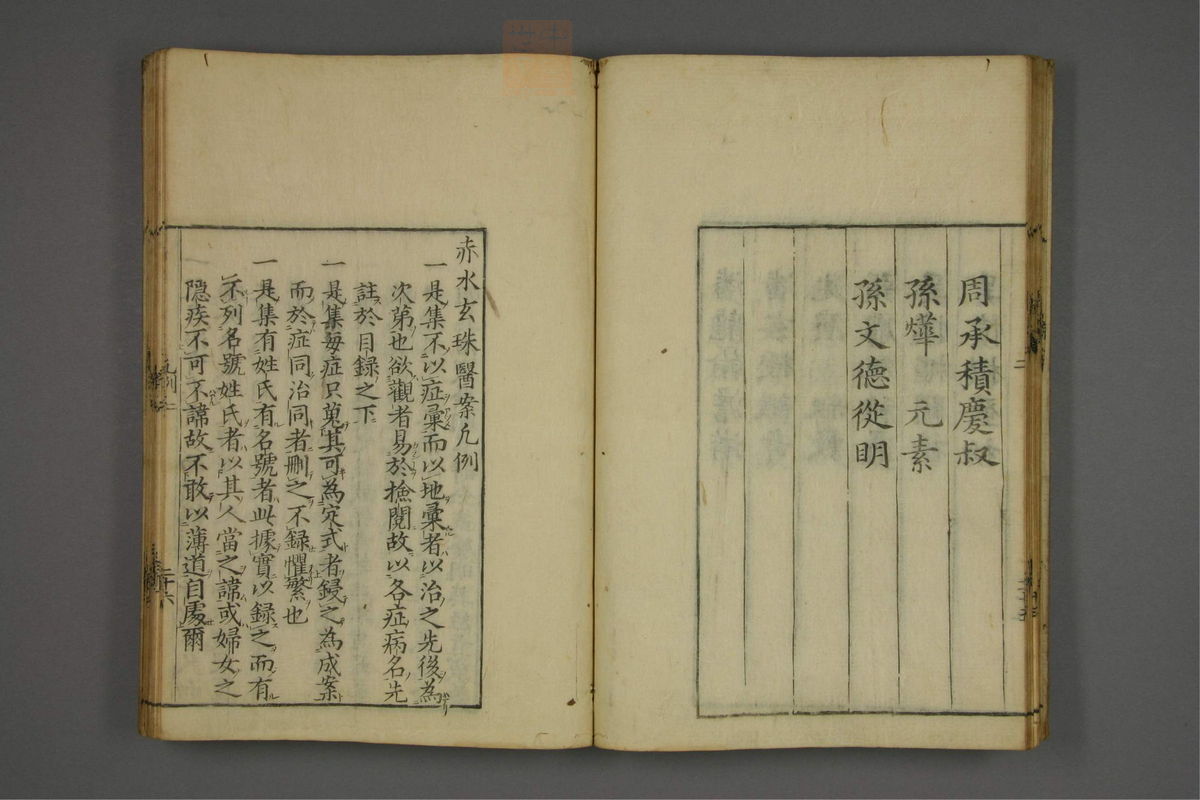 周承積慶叔
孫燁 元素
孫文德從明
赤水玄珠醫案凡例
一是集不以症彙而以地彙者以治之先後為
次第也欲觀者易於撿閱故以各症病名先
註於目録之下
一是集每症只蒐其可為定式者鋟之為成案
而於症同治同者刪之不録懼繁也
一是集有姓氏有名號者此據實以録之而有
不列名號姓氏者以其人當之諱或婦女之
隠疾不可不諱故不敢以薄道自處爾
凡例
二十六